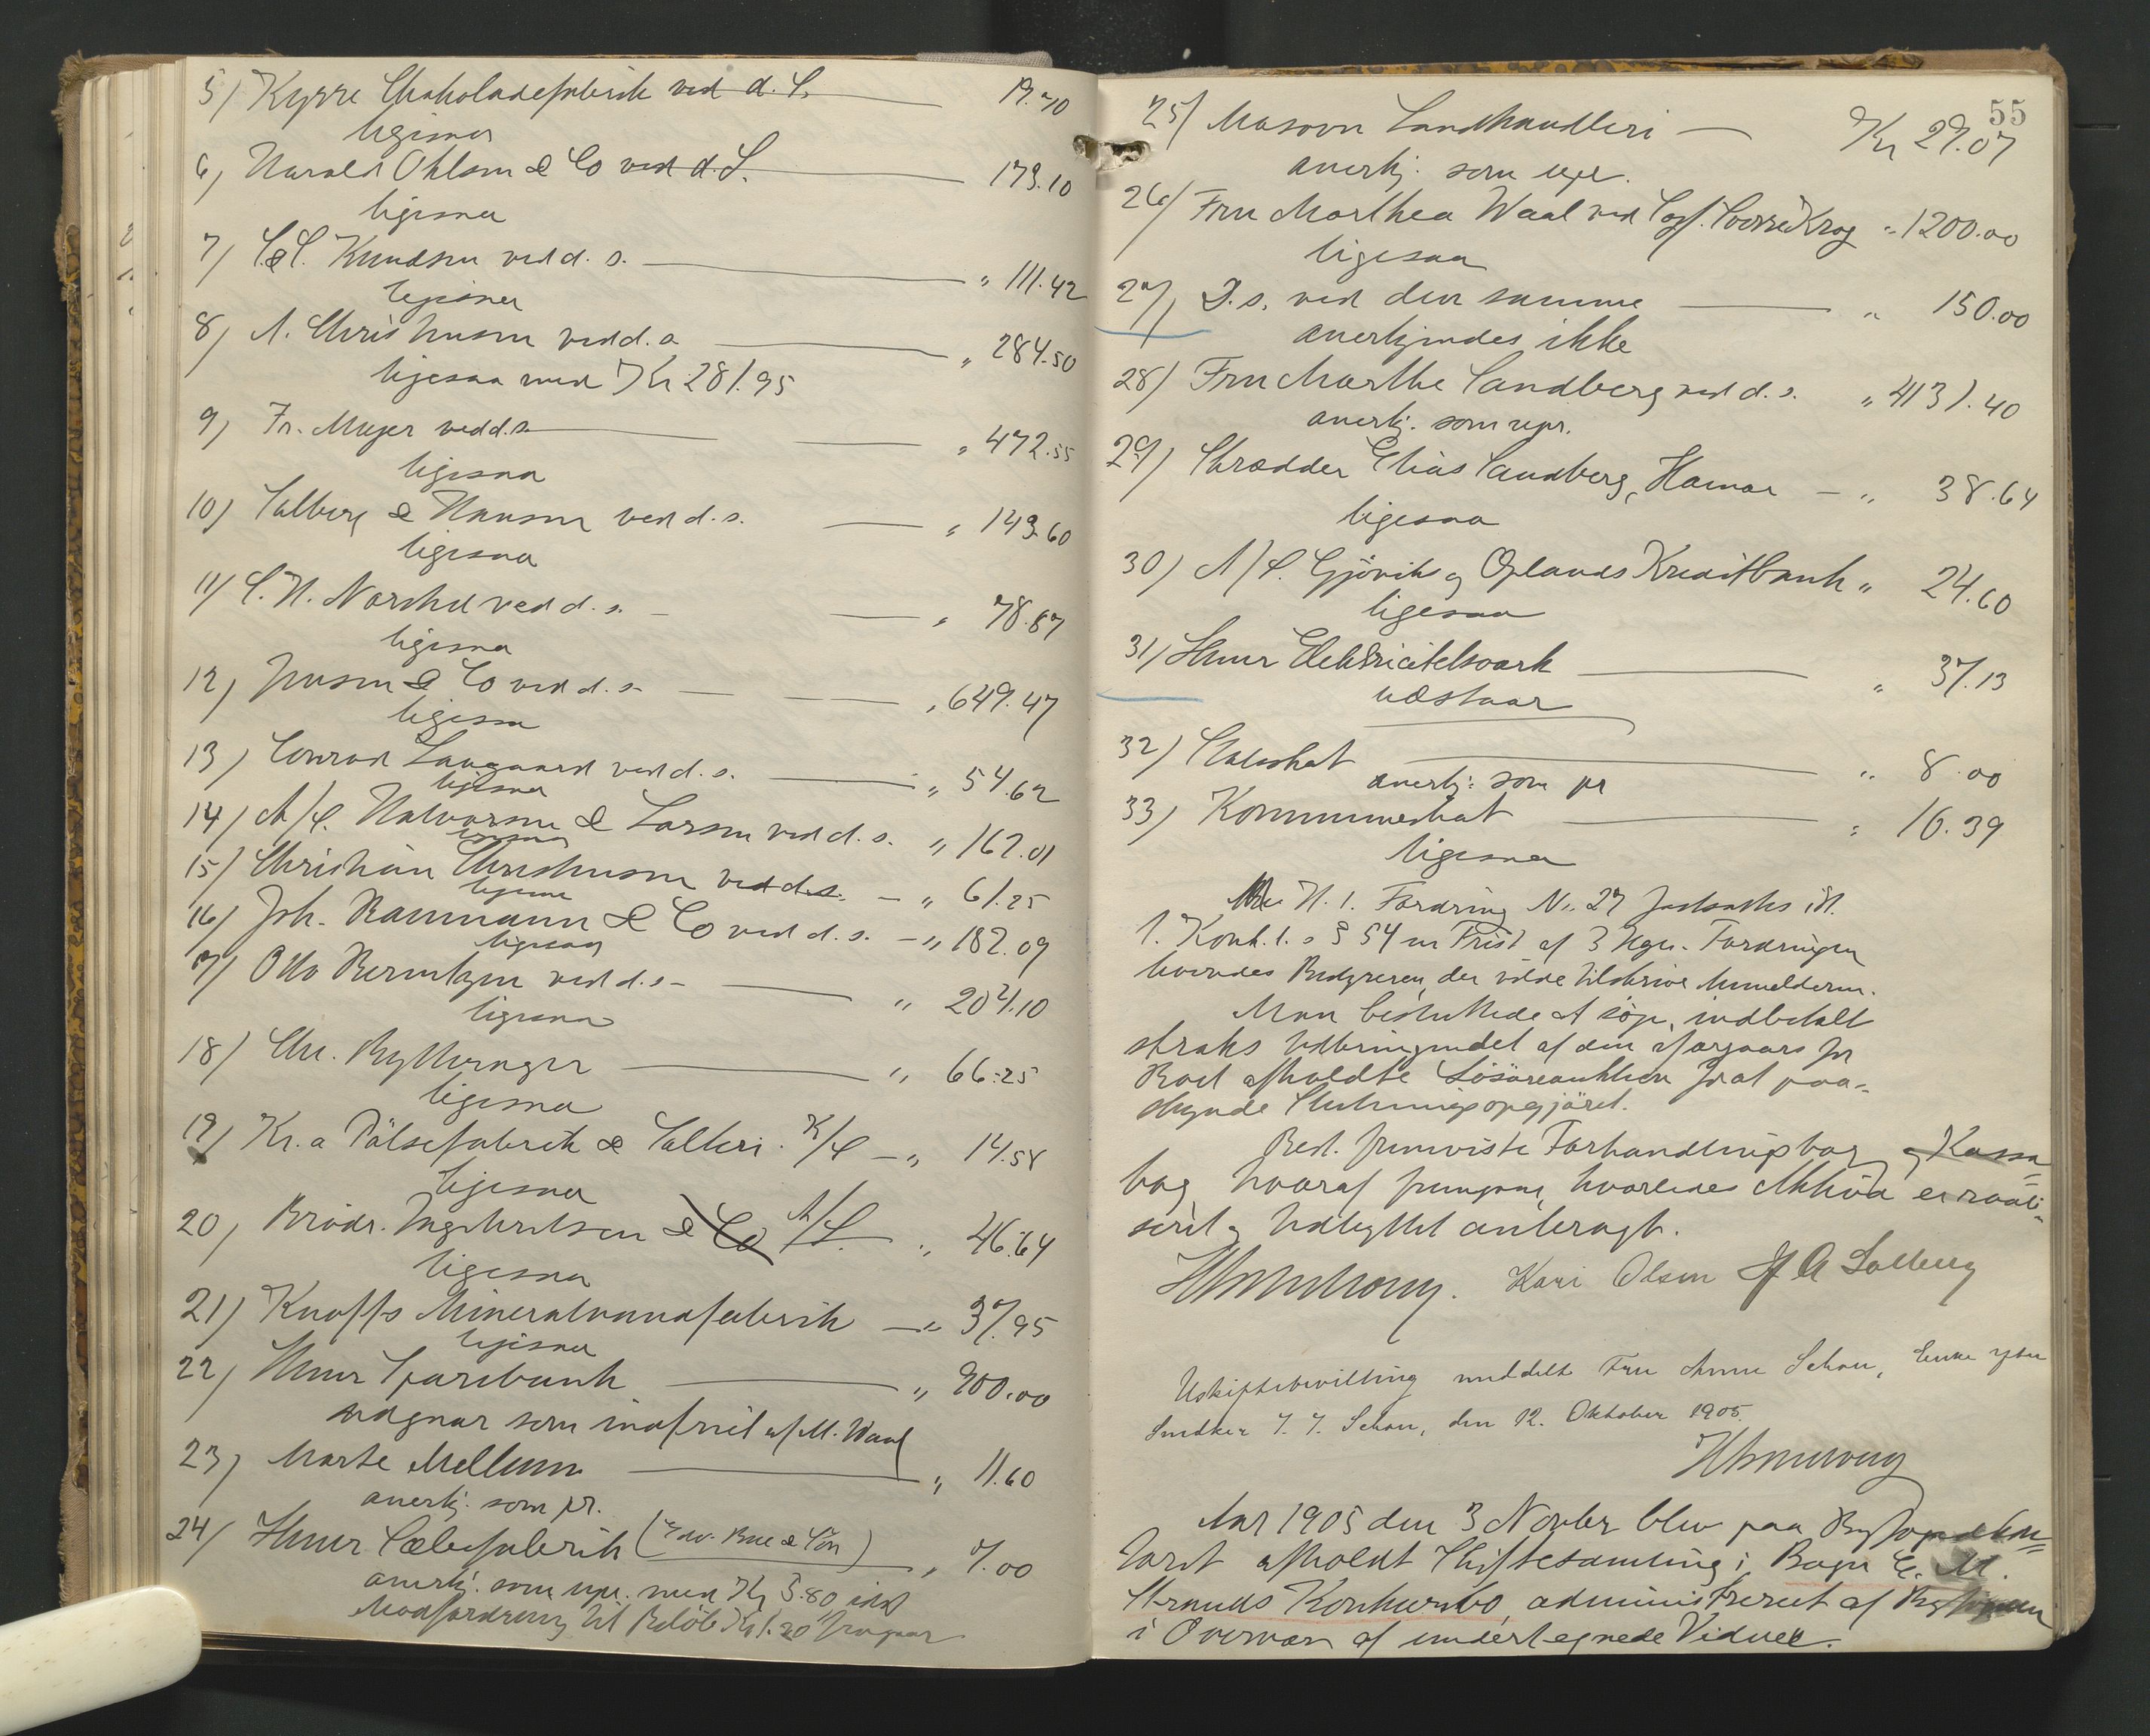 5) Kyrre Chokoladefabrik ved d. S. 19.70
ligesaa
6) Harald Ohlsen & Co ved d. S. 179.10
ligesaa
7) C. & C. Knudsen ved d. s. " 111.42
ligesaa
8) A. Christensen ved d. s. " 284.50
ligesaa med Kr 281.95
9) Fr. Meyer ved d. s. " 472.55
ligesaa
10) Salberg & Hansen ved d. s. " 149.60
ligesaa
11) C. H. ved d. s. " 78.87
ligesaa
12) Jensen & Co ved d. s. " 649.47
ligesaa
13) Conrad Langaard ved d. s. " 54.62
ligesaa
14) A/S. Halvorsen & Larsen ved d. s. " 162.01
ligesaa
15) Christian Christensen ved d. s. " 61.25
ligesaa
16) Joh. Rammann & Co ved d. s. " 182.09
ligesaa
17) Otto Berentzen ved d. s. " 204.10
ligesaa
18) Chr. Rytterager " 66.25
ligesaa
19) Kr.a Pölsefabrik & Salteri " 14.58
ligesaa
20) Brödr. Ingebretsen & Co A/S. " 46.64
ligesaa
21) Knoffs Mineralvandfabrik " 37.95
ligesaa
22) Hmar Sparebank " 900.00
udgaar som indfriet af M. Waal
23) Marte Mellum " 11.60
anerkj. som pr.
24) Hmar Sæbefabrik (Edv. Bue & Sön) " 7.00
anerkj. som upr. med Kr 5.80 idet
Modfordring til Beløb Kr 1.20 fragaar
55
25) Masovn Landhandleri Kr 29.07
anerkj. som upr.
26) Fru Marthea Waal ved Sagf. Sverre Krog " 1200.00
ligesaa
27) D. s. ved den samme " 150.00
anerkjendes ikke
28) Fru Marthe Sandberg ved d. s. " 4131.40
anerkj. som upr.
29) Skrædder Elias Sandberg, Hamar " 38.64
ligesaa
30) A/S. Gjövik og Oplands Kreditbank " 24.60
ligesaa
31) Hmar Elektricitetsværk " 37.13
udstaar
32) Statsskat " 8.00
anerkj. som pr
33) Kommuneskat " 16.39
ligesaa
H. t. Fordring No. 27 fastsattes ifl.
l. Konk. l. s § 54 en Frist af 3 Uger. Fordringen
hvorom Bestyreren der vilde tilskrive Anmelderen.
Man besluttede at søge indbetalt
straks Udbringendet af den iforgaars for
Boet afholdte Lösöreauktion for at paa-
skynde Slutningsopgjöret.
Best. fremviste Forhandlingsbog og Kassa
bog, hvoraf fremgaar, hvorledes Aktiva er reali-
seret og Udbyttet anbragt.
Kari Olsen H A Solberg
Uskiftebevilling meddelt Fru Anne Schou, Enke efter
Snedker J. J. Schou, den 12. Oktober 1905.
Aar 1905 den 3 Novbr blev paa Byfogedkon-
toret afholdt Skiftesamling i Bager C. M.
Strands Konkursbo, administreret af Byfogden
i Overvær af undertegnede Vidner.